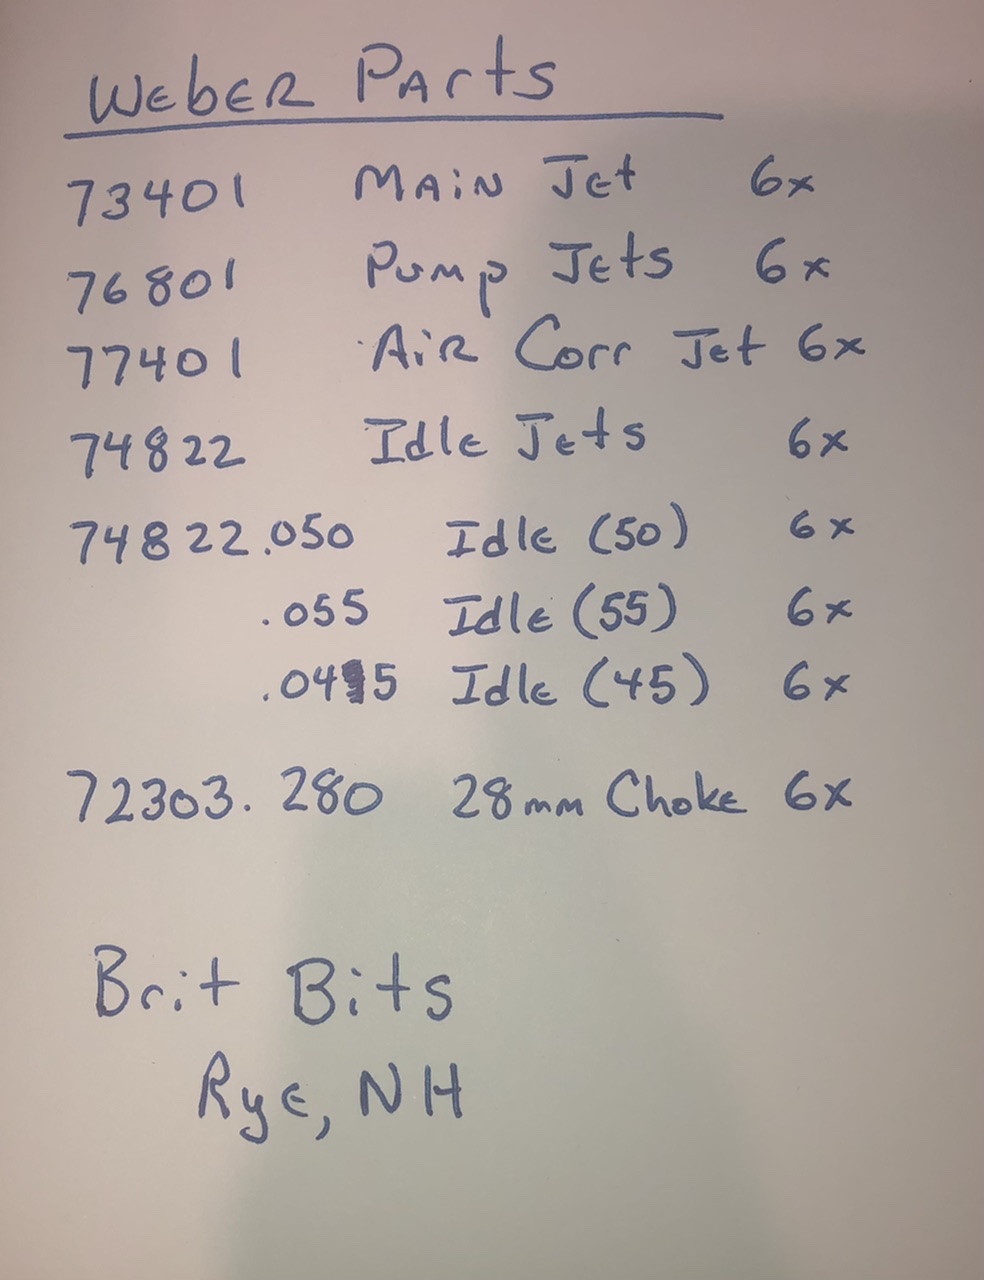 Weber Parts
73401 Main Jet 6x
76801 Pump Jets 6x
77401 Air Corr Jet 6x
74822 Idle Jets 6x
74822.050 Idle (50) 6x
.055 Idle (55) 6x
.045 Idle (45) 6x
72303.280 28mm Choke 6x
Brit Bits
Rye, NH